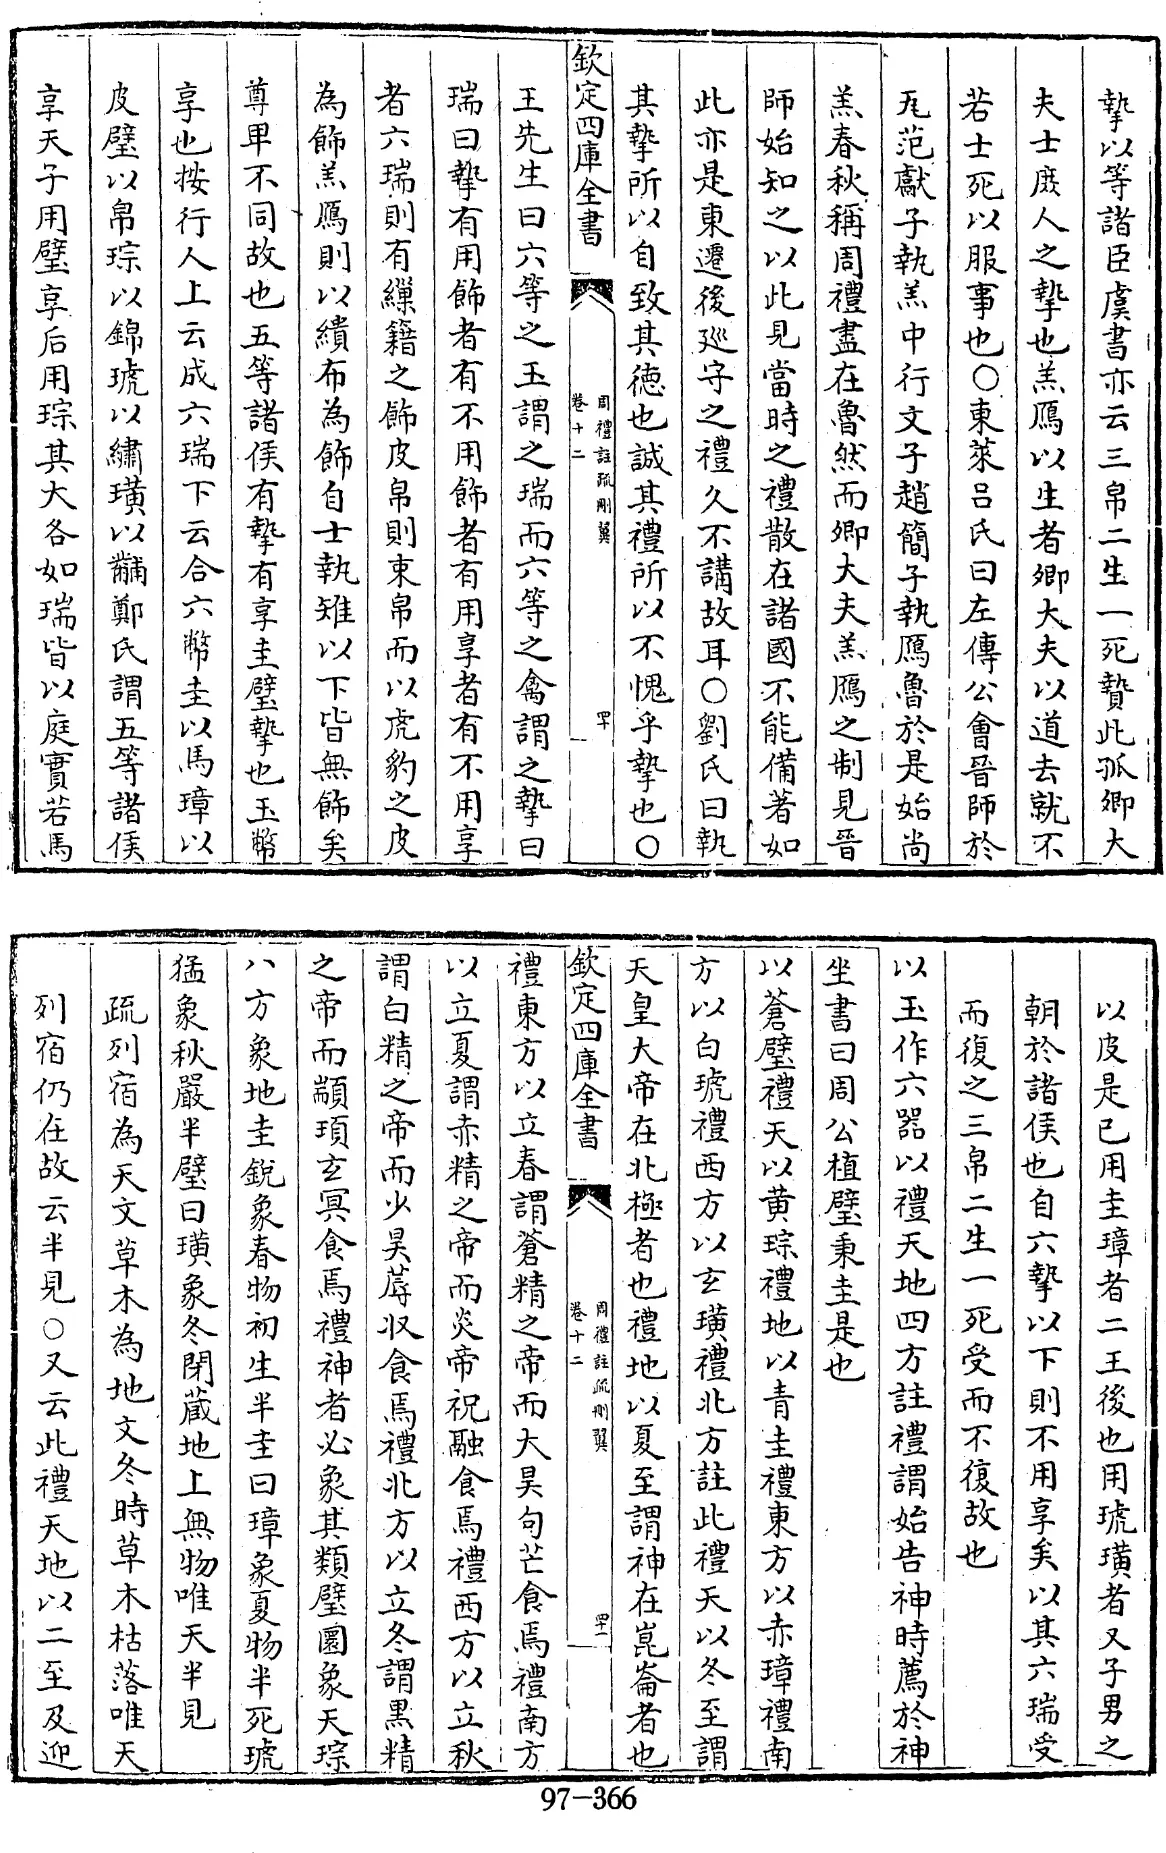 摯以等諸臣虞書亦云三帛二生一死贄此孤卿大
夫士庶人之摯也羔鴈以生者卿大夫以道去就不
若士死以服事也〇東萊呂氏曰左傳公會晉師於
瓦范獻子執羔中行文子趙簡子執鴈魯於是始尚
羔春秋稱周禮盡在魯然而卿大夫羔鴈之制見晉
師始知之以此見當時之禮散在諸國不能備著如
此亦是東遷後廵守之禮久不講故耳〇劉氏曰執
其摯所以自致其徳也誠其禮所以不愧乎摯也〇
欽定四庫全書
周禮註疏刪翼
卷十二
罕
王先生曰六等之玉謂之瑞而六等之禽謂之摯曰
瑞曰摯有用飾者有不用飾者有用享者有不用享
者六瑞則有繅籍之飾皮帛則束帛而以虎豹之皮
為飾羔鴈則以繢布為飾自士執雉以下皆無飾矣
尊卑不同故也五等諸侯有摯有享圭璧摯也玉幣
享也按行人上云成六瑞下云合六幣圭以馬璋以
皮璧以帛琮以錦琥以繡璜以黼鄭氏謂五等諸侯
享天子用璧享后用琮其大各如瑞皆以庭實若馬
以皮是已用圭璋者二王後也用琥璜者又子男之
朝於諸侯也自六摯以下則不用享矣以其六瑞受
而復之三帛二生一死受而不復故也
以玉作六器以禮天地四方註禮謂始告神時薦於神
坐書曰周公植璧秉圭是也
以蒼璧禮天以黄琮禮地以青圭禮東方以赤璋禮南
方以白琥禮西方以玄璜禮北方註此禮天以冬至謂
天皇大帝在北極者也禮地以夏至謂神在崑崙者也
欽定四庫全書
周禮註疏刪翼
卷十二
罕一
禮東方以立春謂蒼精之帝而大昊句芒食焉禮南方
以立夏謂赤精之帝而炎帝祝融食焉禮西方以立秋
謂白精之帝而少昊蓐收食焉禮北方以立冬謂黑精
之帝而顓頊玄冥食焉禮神者必象其類璧圜象天琮
八方象地圭銳象春物初生半圭曰璋象夏物半死琥
猛象秋嚴半璧曰璜象冬閉藏地上無物唯天半見
疏列宿為天文草木為地文冬時草木枯落唯天
列宿仍在故云半見〇又云此禮天地以二至及迎
97-366